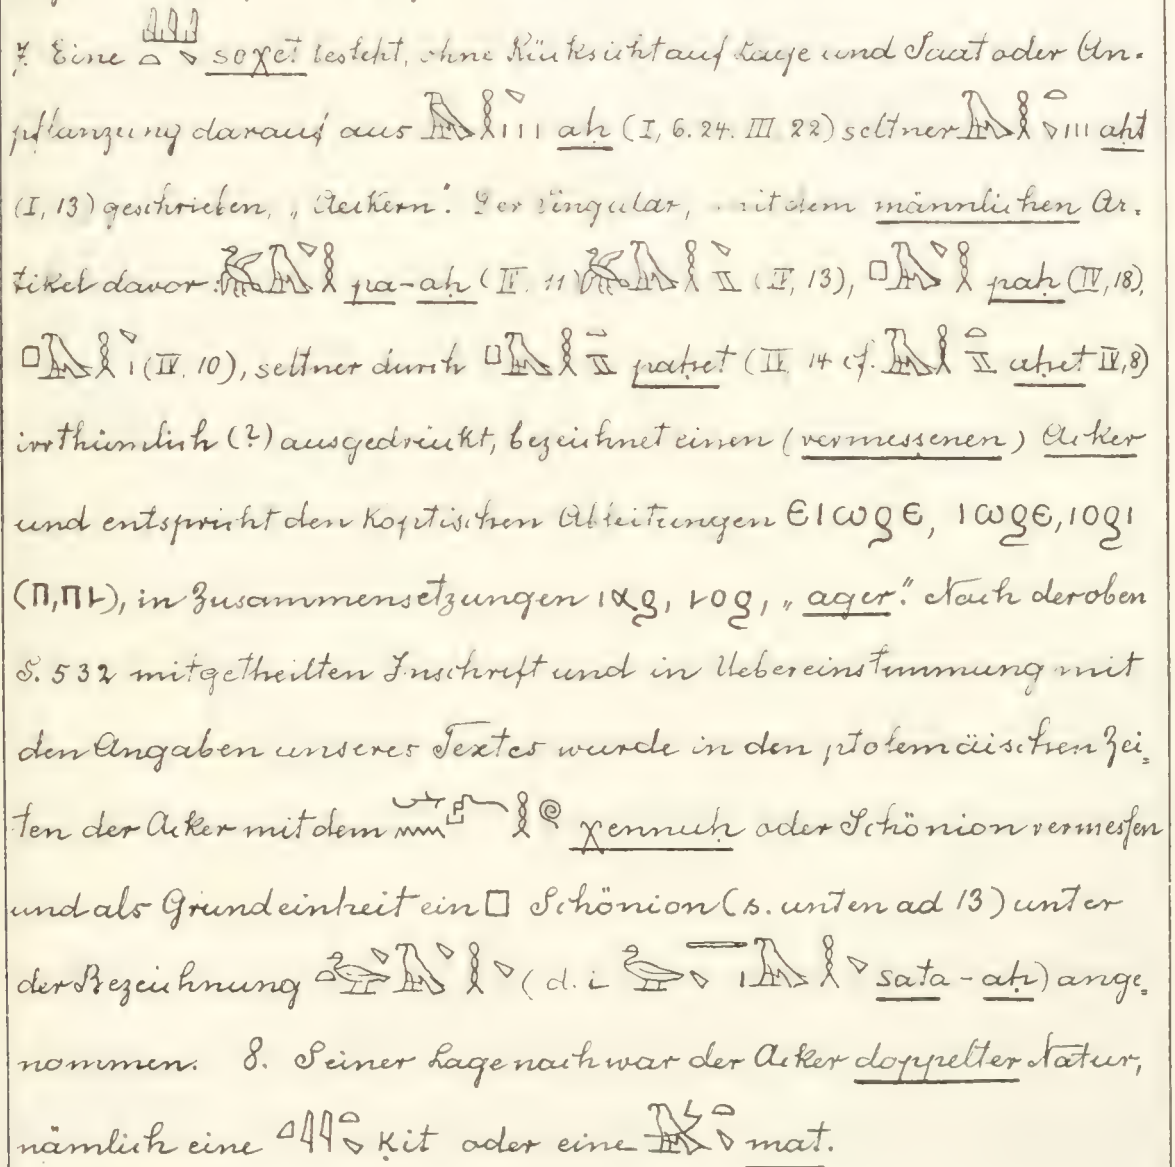 7. Eine soχet besteht, ohne Rücksicht auf Lage und Saat oder An-
pflanzung darauf aus aḥ (I, 6. 24. III 22) seltner aḥt
(I, 13) geschrieben, „Aeckern“. Der Singular, mit dem männlichen Ar-
tikel davor pa-aḥ (II. 11) (II, 13), paḥ (IV, 18),
(IV. 10), seltner durch paḥet (II 14 cf. aḥet IV, 8)
irrthümlich (?) ausgedrückt, bezeichnet einen (vermessenen) Acker
und entspricht den Koptischen Ableitungen ⲉⲓⲱϩⲉ, ⲓⲱϩⲉ, ⲓⲟϩⲓ
(ⲡ, ⲡⲓ), in Zusammensetzungen ⲓⲁϩ, ⲓⲟϩ, „ager“. Nach der oben
S. 532 mitgetheilten Inschrift und in Uebereinstimmung mit
den Angaben unseres Textes wurde in den ptolemäischen Zei-
ten der Acker mit dem χennuḥ oder Schönion vermessen
und als Grundeinheit ein □ Schönion (s. unten ad 13) unter
der Bezeichnung (d. i sata-aḥ) ange-
nommen. 8. Seiner Lage nach war der Acker doppelter Natur,
nämlich eine ḳit oder eine mat.